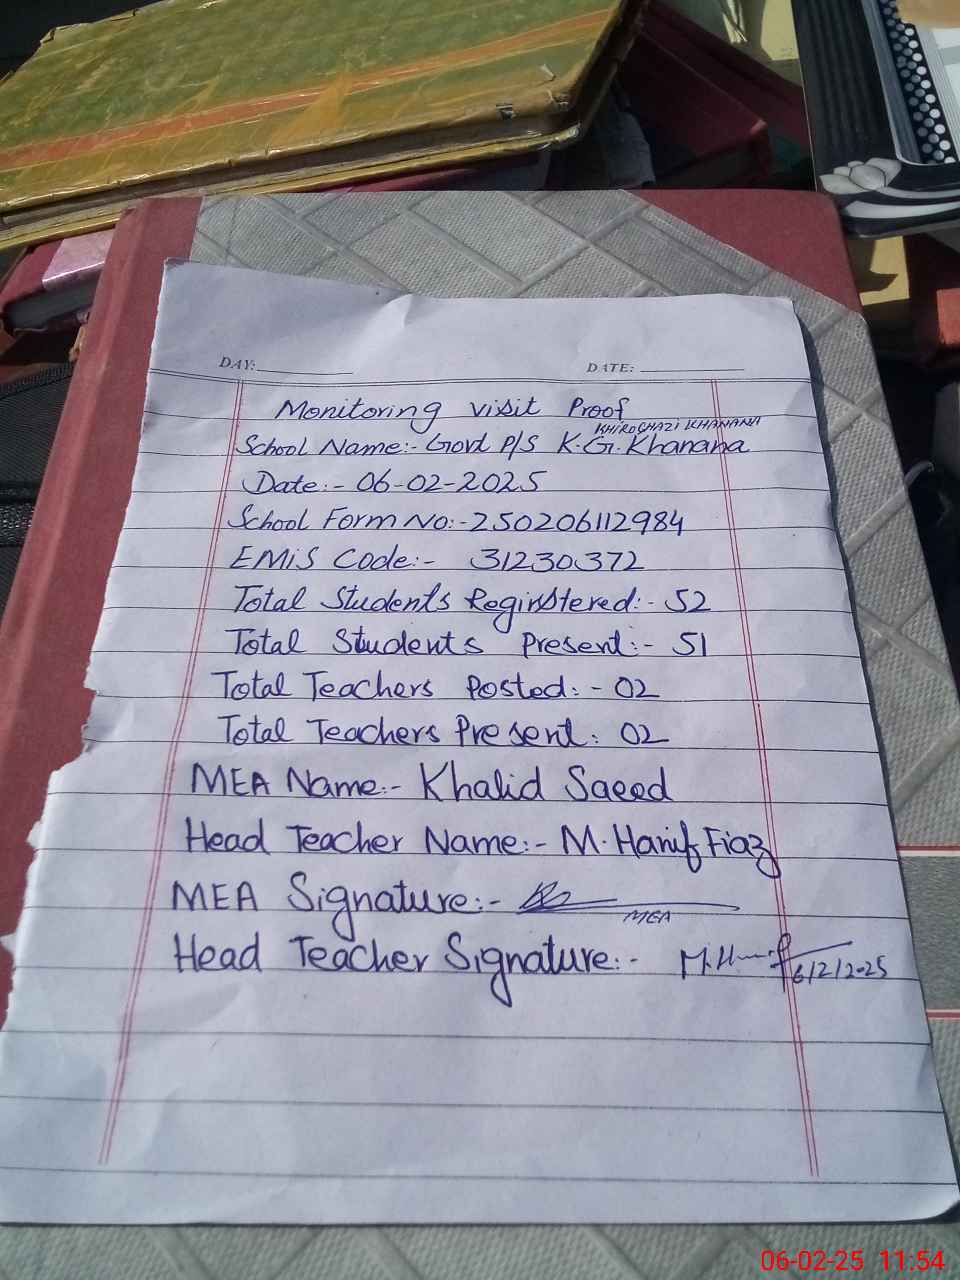 DAY: DATE:
Monitoring visit Proof
KHIRO GHAZI KHANANA
School Name:- Govt P/S K.G. Khanana
Date:- 06-02-2025
School Form No:- 250206112984
EMiS Code:- 31230372
Total Students Reginstered:- 52
Total Students Present:- 51
Total Teachers Posted:- 02
Total Teachers Present: 02
MEA Name:- Khalid Saeed
Head Teacher Name:- M. Hanif Fiaz
MEA Signature:-
MEA
Head Teacher Signature:- M. Hanif
6/2/2025
06-02-25 11:54